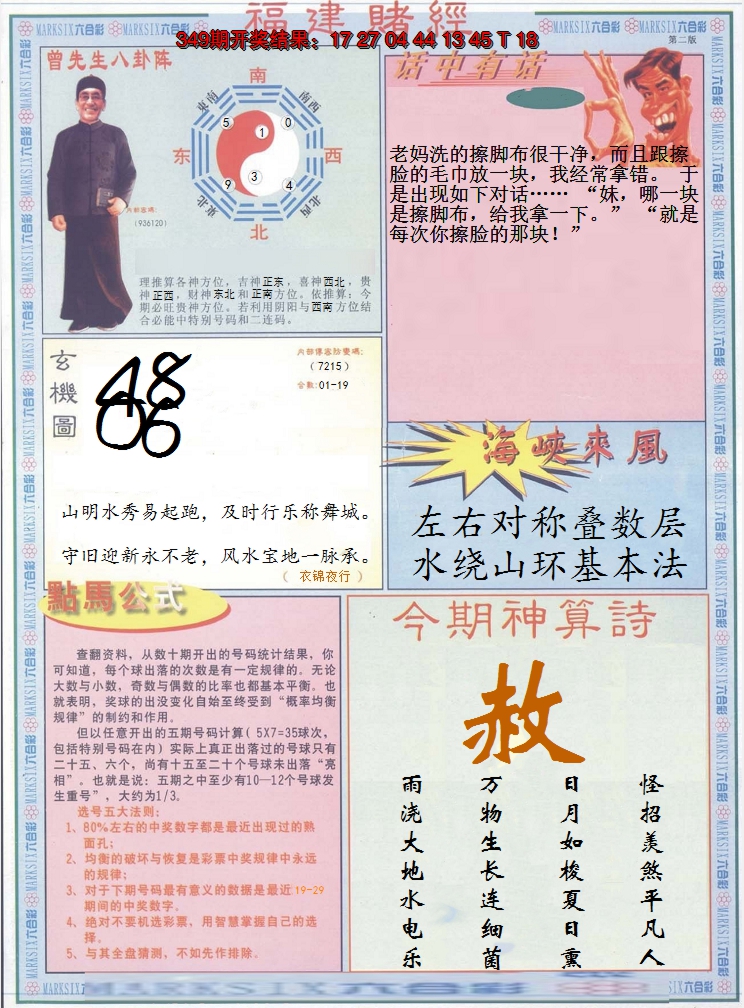 福建賭經
349期开奖结果：17 27 04 44 13 45 T 18
MARKSIX六合彩
第二版
曾先生八卦阵
南
东南
西南
5
1
0
东
西
9
3
4
东北
西北
北
内部密碼:
（936120）
理推算各神方位，吉神正东，喜神西北，贵
神正西，财神东北和正南方位。依推算：今
期必旺贵神方位。若利用阴阳与西南方位结
合必能中特别号码和二连码。
话中有话
老妈洗的擦脚布很干净，而且跟擦
脸的毛巾放一块，我经常拿错。 于
是出现如下对话…… “妹，哪一块
是擦脚布，给我拿一下。” “就是
每次你擦脸的那块！”
玄機圖
48
06
（7215）
合数:01-19
山明水秀易起跑，及时行乐称舞城。
守旧迎新永不老，风水宝地一脉承。
（ 衣锦夜行 ）
海峡來風
左右对称叠数层
水绕山环基本法
點馬公式
查翻资料，从数十期开出的号码统计结果，你
可知道，每个球出落的次数是有一定规律的。无论
大数与小数，奇数与偶数的比率也都基本平衡。也
就表明，奖球的出没变化自始至终受到“概率均衡
规律”的制约和作用。
但以任意开出的五期号码计算( 5X7=35球次，
包括特别号码在内）实际上真正出落过的号球只有
二十五、六个，尚有十五至二十个号球未出落“亮
相”。也就是说：五期之中至少有10—12个号球发
生重号”，大约为1/3。
选号五大法则：
1、80%左右的中奖数字都是最近出现过的熟
面孔；
2、均衡的破坏与恢复是彩票中奖规律中永远
的规律；
3、对于下期号码最有意义的数据是最近19-29
期间的中奖数字。
4、绝对不要机选彩票，用智慧掌握自己的选
择。
5、与其全盘猜测，不如先作排除。
今期神算詩
赦
雨浇大地水电乐
万物生长连细菌
日月如梭夏日熏
怪招羡煞平凡人